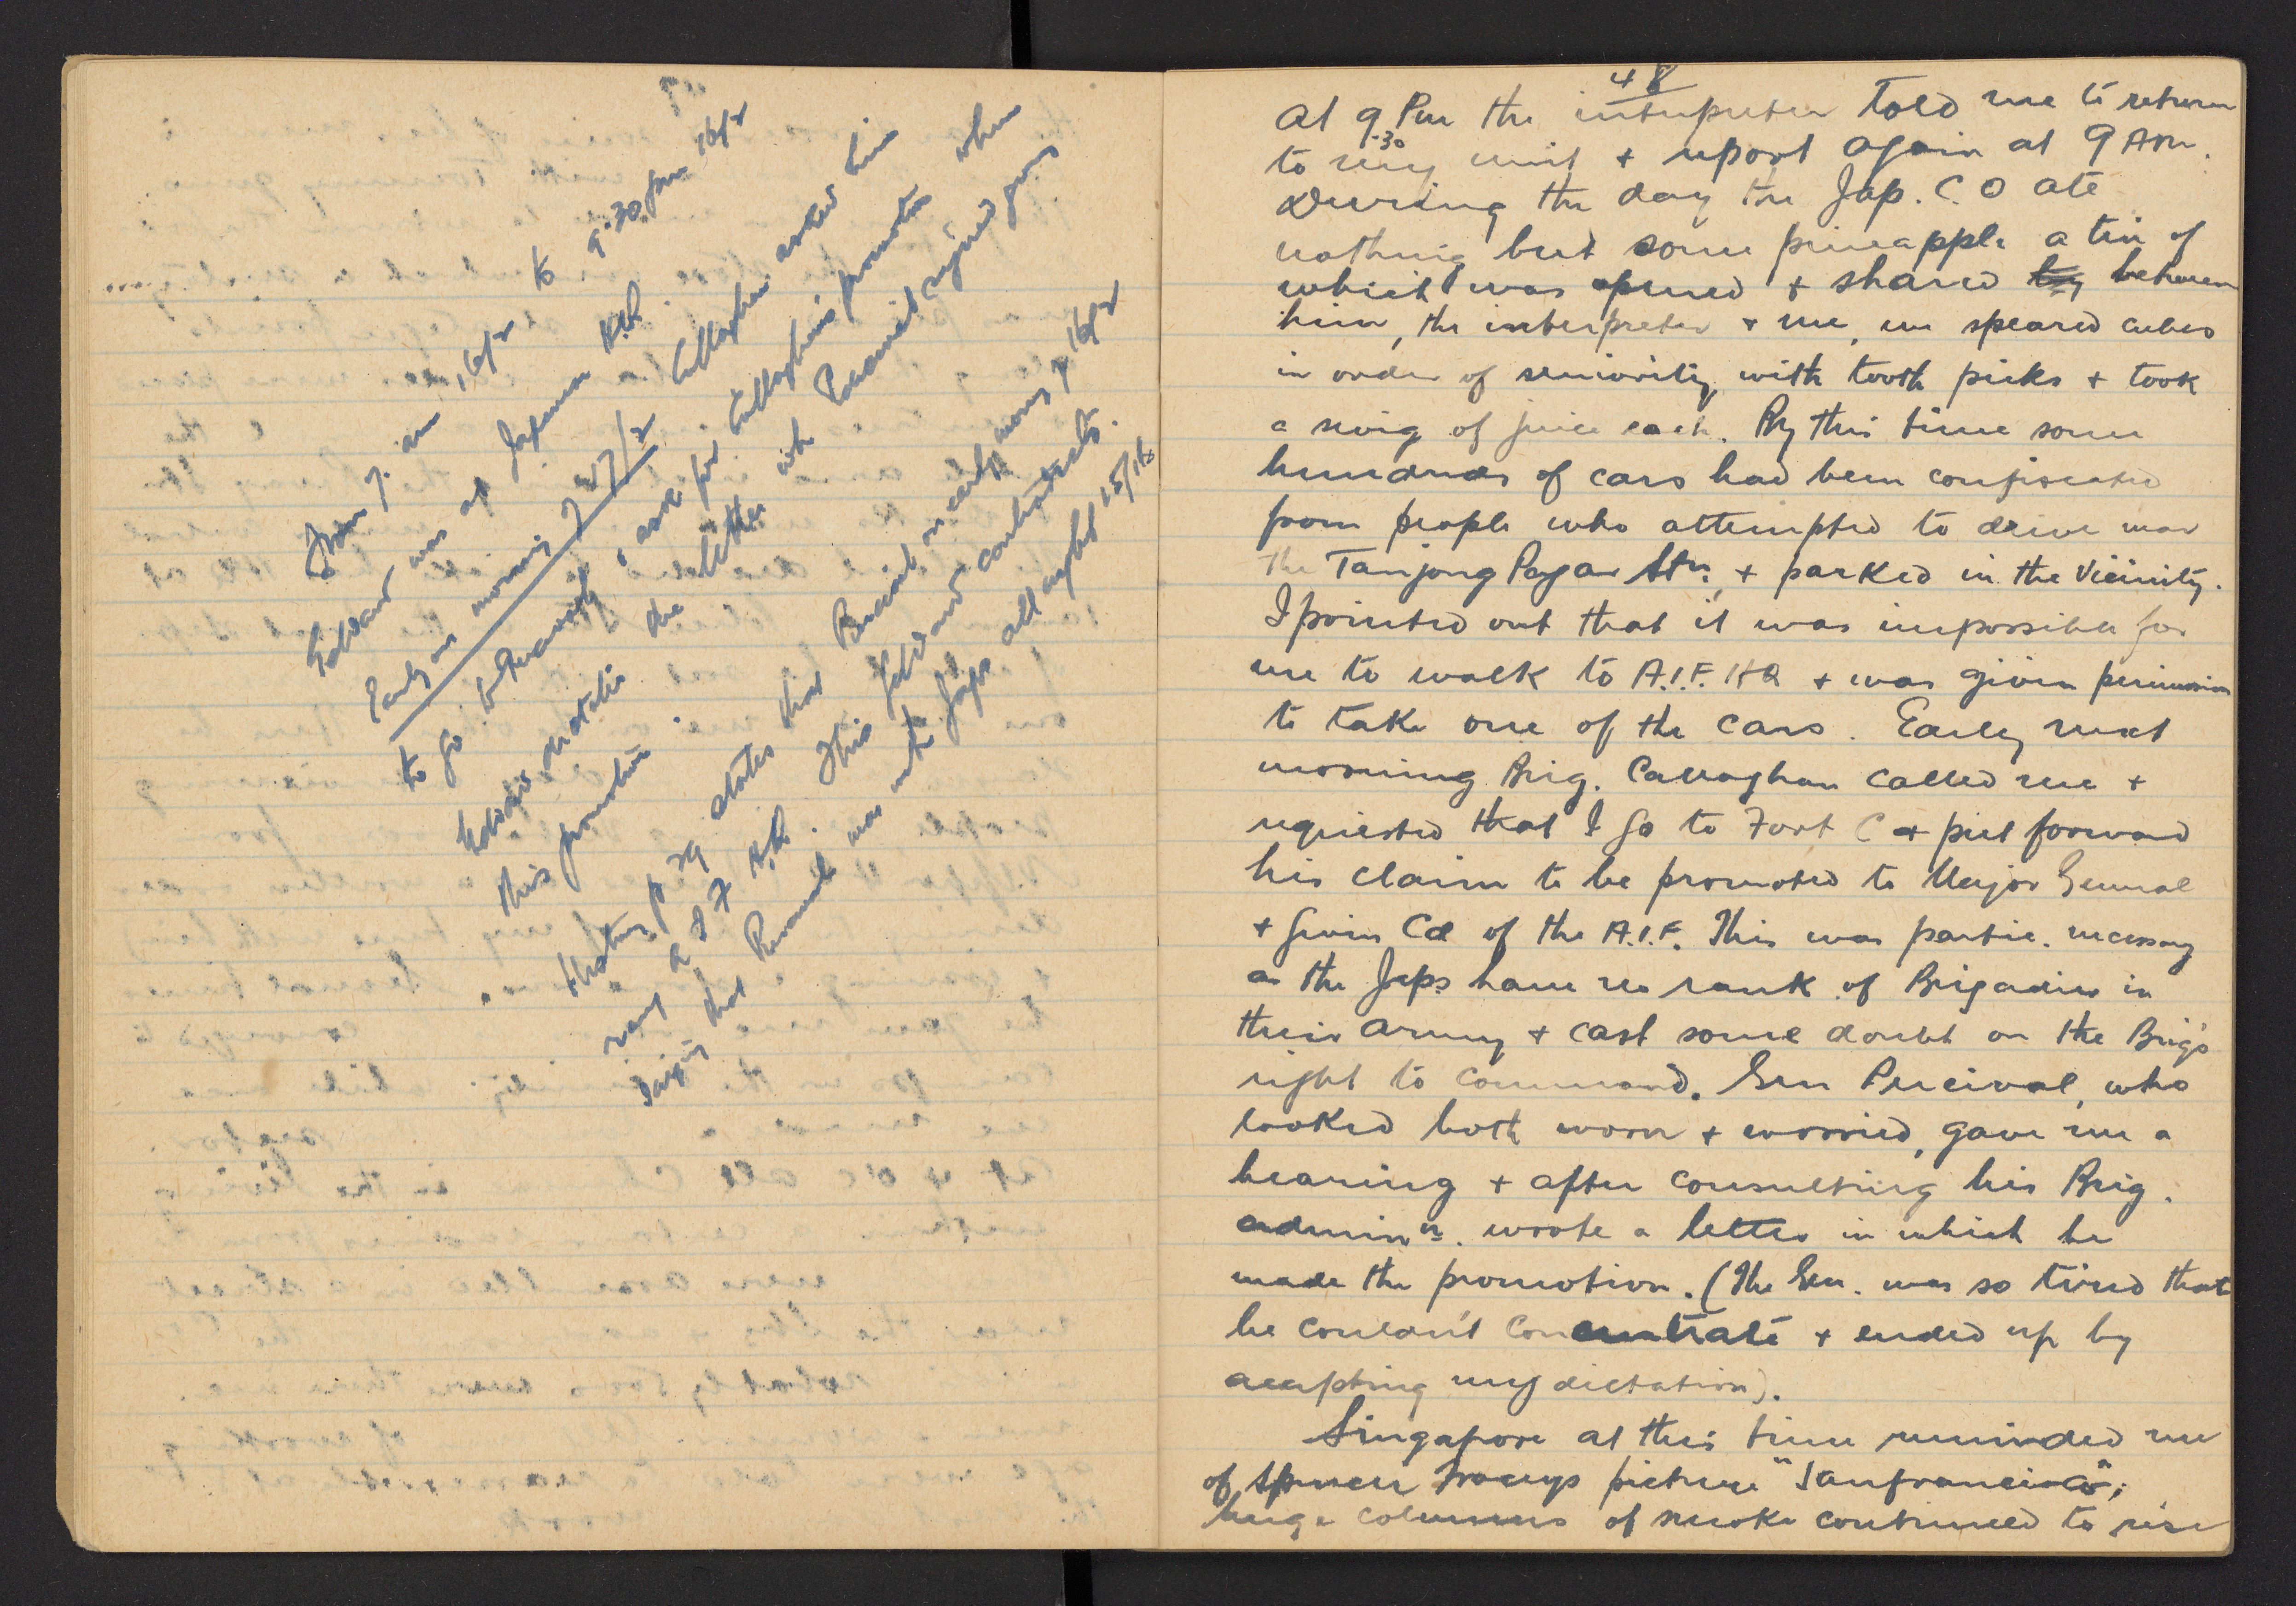 From 7. am 16/2 to 9.30 pm 16/2
was at Japanese H.Q.
Early on morning of 17/2 Callaghan asked him
to go to Percival & ask for Callaghan's promotion when
the letter which Percival signed giving
this promotion.
p 29 states that Percival in early morng of 16/2
rang A I F H.Q. This contradicts.
saying that Percival was with Japs all night 15/16
48
at 9.30 Pm the interpreter told me to return
to my unit + report again at 9 AM.
During the day the Jap. C.O ate
nothing but some pineapple a tin of
which was opened + shared by between
him, the interpreter + me, we speared cubes
in order of seniority with tooth picks + took
a swig of juice each. By this time some
hundreds of cars had been confiscated
from people who attempted to drive near
the Tanjong Pagar Stn. + parked in the vicinity.
I pointed out that it was impossible for
me to walk to A.I.F. HQ + was given permission
to take one of the cars. Early next
morning Brig. Callaghan called me +
requested that I go to Fort C + put forward
his claim to be promoted to Major General
+ given Cd of the A.I.F. This was partic. necessary
as the Japs have no rank of Brigadier in
their army + cast some doubt on the Brig's
right to command. Gen Percival, who
looked both worn + worried, gave me a
hearing + after consulting his Brig.
adminn. wrote a letter in which he
made the promotion. (The Gen. was so tired that
he couldn't concentrate + ended up by
accepting my dictation).
Singapore at this time reminded me
of Spencer Tracys picture "Sanfrancisco";
huge columns of smoke continued to rise